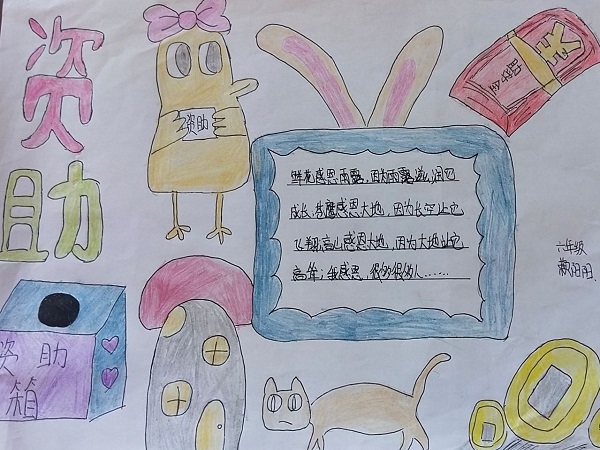 资
助
资助
鲜花感恩雨露,因为雨露滋润它
成长;苍鹰感恩长空,因为长空让它
飞翔;高山感恩大地,因为大地让它
高耸;我感恩,很多很多人……
六年级
资助
箱